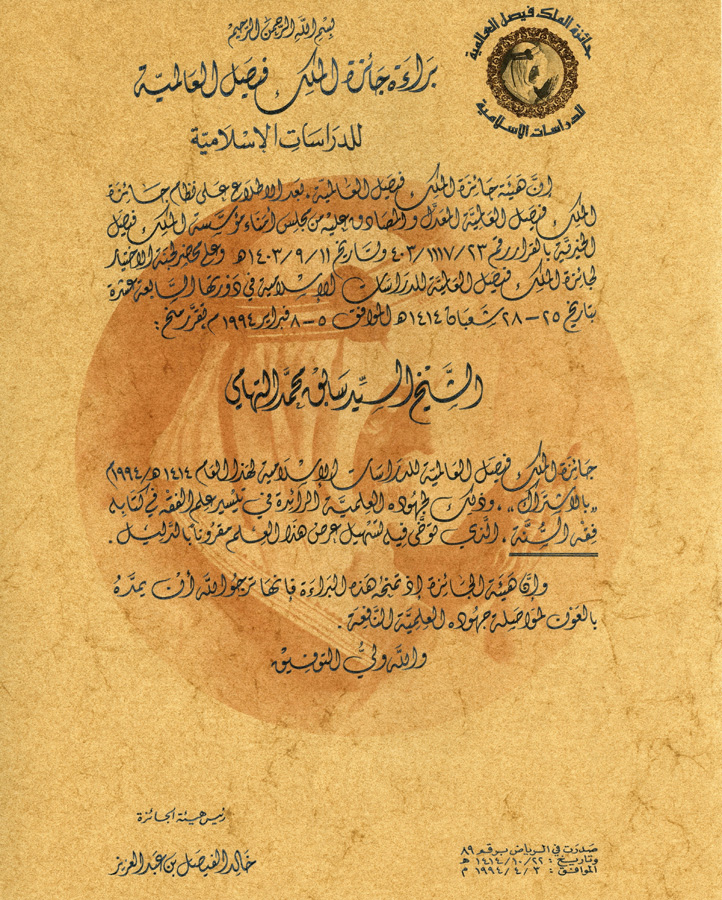 بسم الله الرحمن الرحيم
جائزة الملك فيصل العالمية
للدراسات الإسلامية
براءة جائزة الملك فيصل العالمية
للدراسات الإسلامية
إن هيئة جائزة الملك فيصل العالمية، بعد الاطلاع على نظام جائزة
الملك فيصل العالمية المعدل والمصادق عليه من مجلس أمناء مؤسسة الملك فيصل
الخيرية بالقرار رقم ٤٠٣/١١١٧/٢٣ وتاريخ ١٤٠٣/٩/١١هـ وعلى محضر لجنة الاختيار
لجائزة الملك فيصل العالمية للدراسات الإسلامية في دورتها السابعة عشرة
بتاريخ ٢٥ – ٢٨ شعبان ١٤١٤هـ الموافق ٥ – ٨ فبراير ١٩٩٤م تقرر منح:
الشيخ السيد سابق محمد التهامي
جائزة الملك فيصل العالمية للدراسات الإسلامية لهذا العام ١٤١٤هـ/١٩٩٤م
"بالاشتراك"، وذلك لجهوده العلمية الرائدة في تيسير علم الفقه في كتابه
فقه السنة، الذي توخى فيه تسهيل عرض هذا العلم مقرونا بالدليل.
وإن هيئة الجائزة إذ تمنحه هذه البراءة فإنها ترجو الله أن يمده
بالعون لمواصلة جهوده العلمية النافعة.
والله ولي التوفيق
رئيس هيئة الجائزة
خالد الفيصل بن عبد العزيز
صدرت في الرياض برقم ٨٩
وتاريخ: ١٤١٤/١٠/٢٢ هـ
الموافق: ١٩٩٤/٤/٣ م